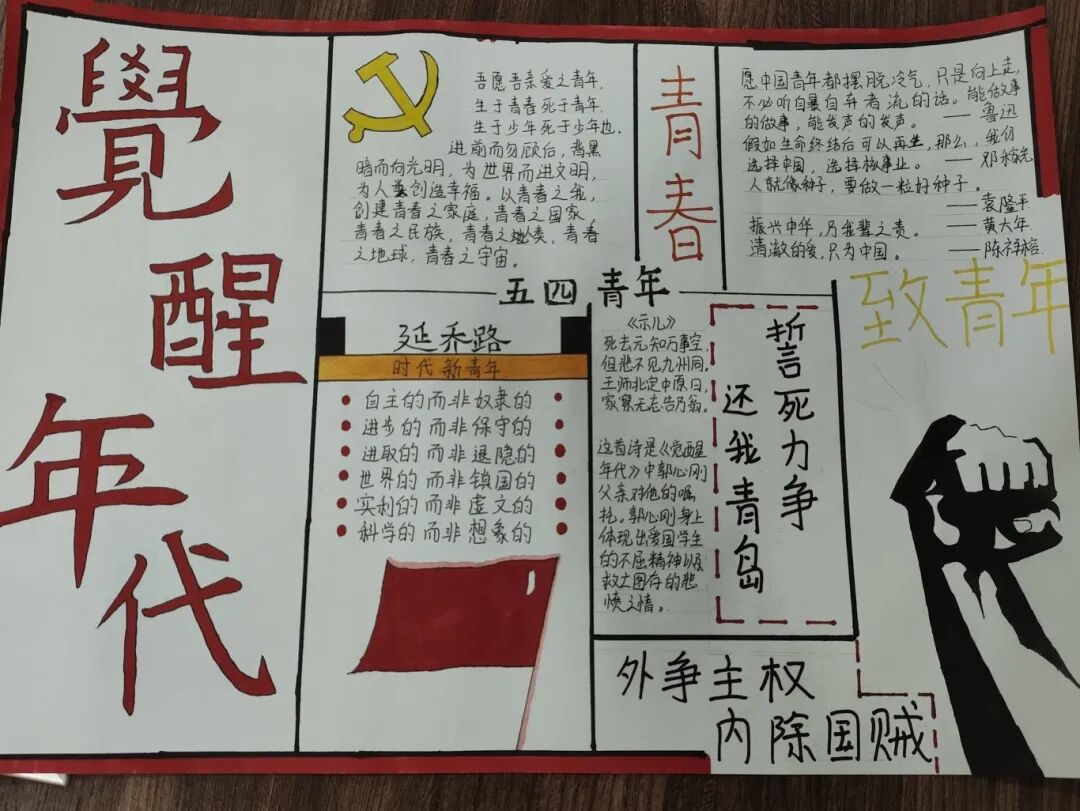 覺
醒
年
代
吾愿吾亲爱之青年，
生于青春死于青年
生于少年死于少年也。
进前而勿顾后，背黑
暗而向光明，为世界而进文明，
为人类创造幸福。以青春之我，
创建青春之家庭，青春之国家
青春之民族，青春之地类，青春
之地球，青春之宇宙。
青春
愿中国青年都摆脱冷气，只是向上走，
不必听自暴自弃者流的话。能做事
的做事，能发声的发声。——鲁迅
假如生命终结后可以再生，那么，我们
选择中国，选择核事业。——邓稼先
人就像种子，要做一粒好种子。
——袁隆平
振兴中华，乃我辈之责。——黄大年
清澈的爱，只为中国。——陈祥榕
五四青年
致青年
延乔路
时代新青年
自主的而非奴隶的
进步的而非保守的
进取的而非退隐的
世界的而非锁国的
实利的而非虚文的
科学的而非想象的
《示儿》
死去元知万事空，
但悲不见九州同，
王师北定中原日，
家祭无忘告乃翁。
这首诗是《觉醒
年代》中郭心刚
父亲对他的嘱
托。郭心刚身上
体现出爱国学生
的不屈精神以及
救亡图存的悲
愤之情。
誓死力争
还我青岛
外争主权
内除国贼